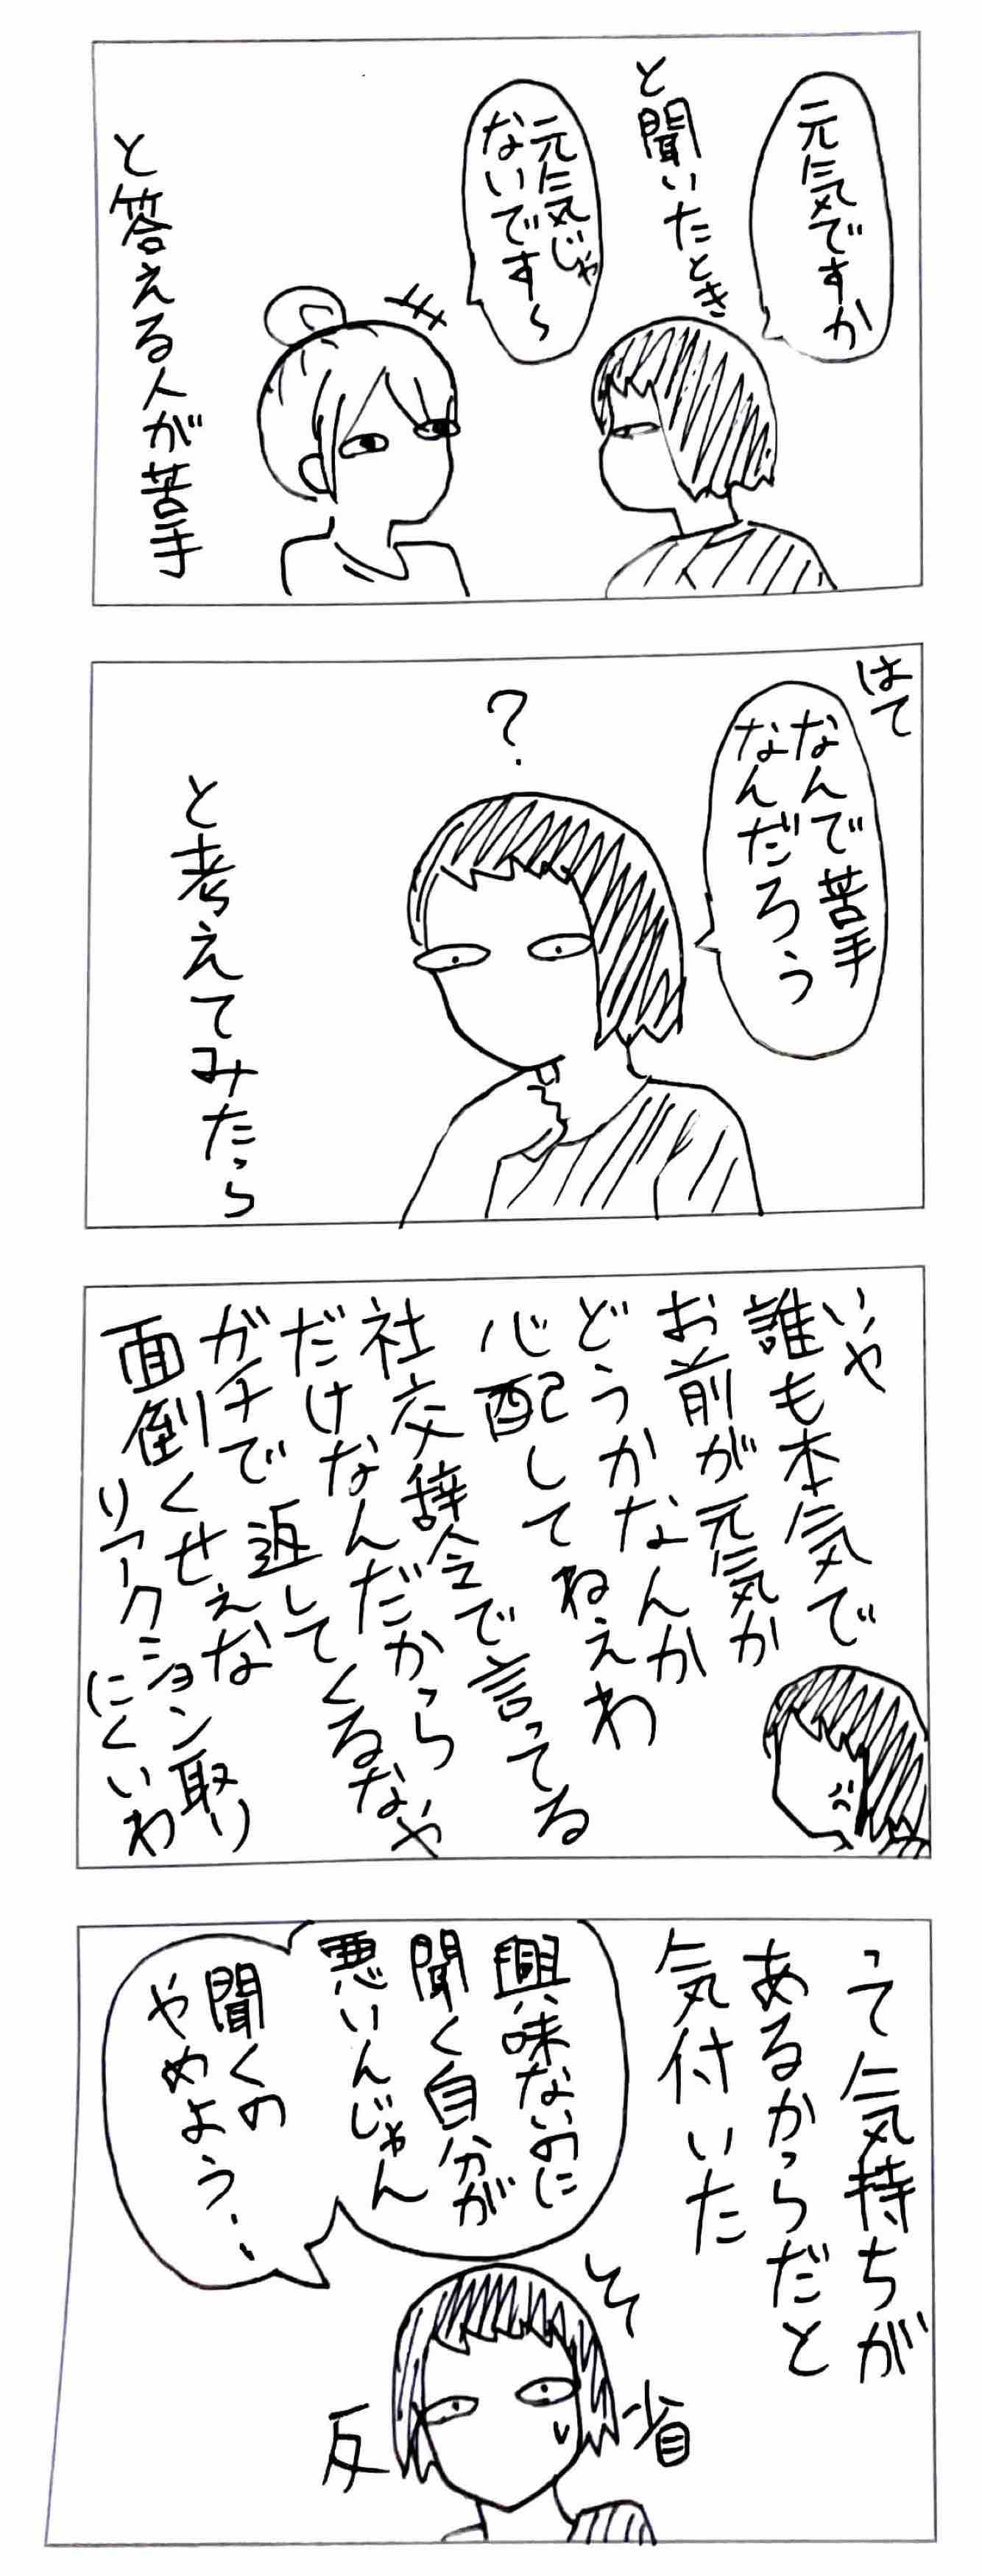 元気ですか
と聞いたとき
元気じゃ
ないです〜
と答える人が苦手
はて
なんで苦手
なんだろう
?
と考えてみたら
いや
誰も本気で
お前が元気か
どうかなんか
心配してねえわ
社交辞令で言ってる
だけなんだから
ガチで返してくるなや
面倒くせえな
リアクション取り
にくいわ
って気持ちが
あるからだと
気付いた
興味ないのに
聞く自分が
悪いんじゃん
聞くの
やめよう、、
反省